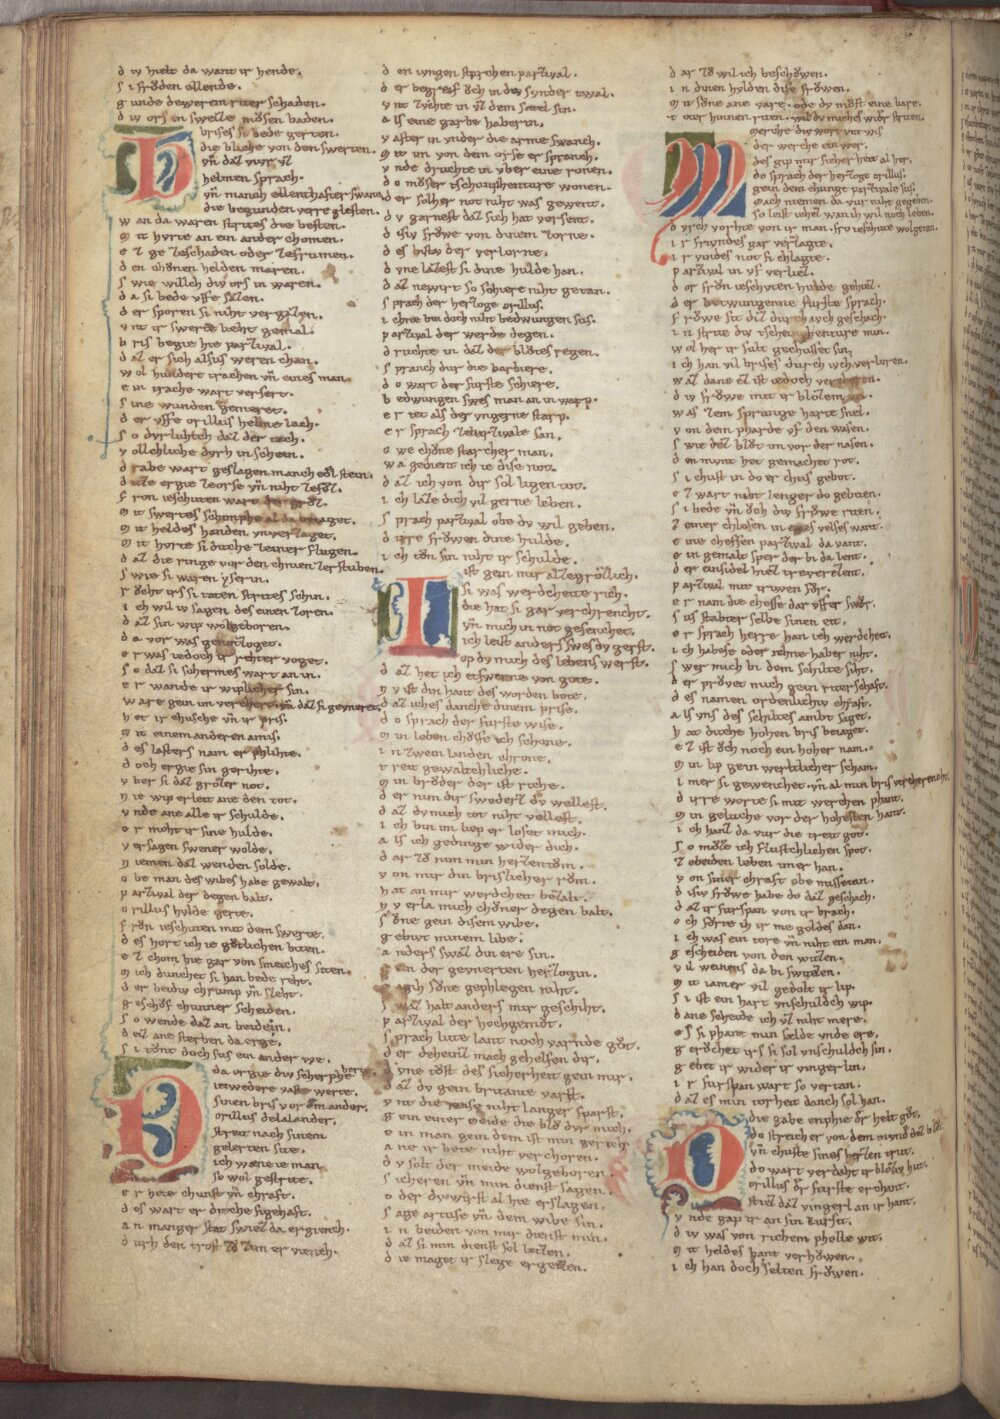 d iv hielt da want ir hende.
s i froͮden ellende.
g unde de werem riter schaden.
d iv ors in swelle moͤsen baden.
die bliche von den swerten.
vn̄ daz viur vz
helmen sprach.
w an da waren strites die besten.
g it hvrte an ein ander chomen.
e z ge zeschaden oder zefrumen.
d en choͤnen helden maren.
s wie willch div ors in waren.
d a si bede vffe sazen.
d er sporen si niht vergazen.
v nt ir swerte lieht gemal.
p ris begie hie parzival.
d az er sich alsus weren chan.
w ol hundert trachen vn̄ eines man.
e in trache wart versert.
s ine wunden gemeret.
d er vffe orillus helme lach.
s o dvrluhtch daz der tach.
v ollechliche dvrh in schein.
d rabe wart geslagen manch edel stein.
f ron ieschuten wart
m it heldes handen
m it hvrte si dvche zeiner flugen.
d az die ringe vor den chnien zerstuben.
s wie si waren yserin.
r oͮcht irs si taten strites schin.
i ch wil iv sagen des einen zoren.
d az sin wip wolgeboren.
d a vor was genotzoget.
e r was iedoch ir rehter voget.
s o daz si schermes wart an in.
e r wande ir wiplicher sin.
w are gein im verchert. vn̄ daz si geuneret.
h et ir chusche vn̄ ir pris.
m it einem anderen amis.
d es lasters nam er phlihte.
d och ergie sin gerihte.
v ber si daz groͤzer not.
n ie wip erleit ane den tot.
v nde ane alle ir schulde.
e r moht ir sine hulde.
v ersagen swener wolde.
n iemen daz wenden solde.
o be man des wibes habe gewalt.
p arzival der degen balt.
o rillus hylde gerte.
f ron ieschuten mit dem swerte.
d es hort ich ie guͤtlichen biten.
e z chom hie gar von smeiches siten.
m ich dunchet si han bede reht.
d er beidiv chrump vn̄ sleht.
g eschoͤf chunner scheiden.
s o wende daz an beiden.
d az ane sterben da erge.
s i toͮnt doch sus ein ander we.
da ergie div scherphe herte.
ietwedere vaste werte.
sinen bris vor dem ander.
orillus delalander.
streit nach sinem
gelerten site.
ich wane ie man
so wol gestrite.
e r hete chunst vn̄ chraft.
d es wart er dicche sigehaft.
a n manger stat swiez da ergiench.
d urh den trost zuͦ zim er viench.
d en iungen starchen parzival.
d er begreif oͮch in do
v nt zvhte in vz dem satel sin.
a ls eine garbe haberin.
v aster in vnder die arme swanch.
m it im von dem orse er spranch.
v nde druchte in vber eine ronen.
d o moͤser tschumphenture wonen.
d er solher not niht was gewent.
d v garnest daz sich hat versent.
d isiv froͮwe von dinem zorne.
d es bistv der verlorne.
d vne lazest si dine hulde han.
d az newirt so schiere niht getan.
s prach der herzoge orillus.
i chne bin doch niht bedwungen sus.
p arzival der werde degen.
d ruchte in daz der bluͦtes regen.
s pranch dur die barbiere.
d o wart der furste schiere.
b edwungen swes man an in warp.
e r tet als der vngerne starp.
e r sprach zeparzivale san.
o we choͤne starcher man.
w a gedient ich ie dise not.
d az ich von dir sol ligen tot.
i ch laze dich vil gerne leben.
s prach parzival obe dv wil geben.
d irre froͮwen dine hulde.
i ch toͮn sin niht ir schulde.
ist gein mir alzegroͤzlich.
si was werdcheite rich.
die hat si gar verchrencht.
vn̄ mich in not gesenchet.
ich leist anders swes dv gerst.
op dv mich des lebens werst.
d az het ich etswenne von gote.
n v ist din hant des worden bote.
d az iches danche dinem prise.
d o sprach der furste wise.
m in leben choͤffe ich schone.
i n zwein landen chrone.
t reit gewaltchliche.
m in bruͦder der ist riche.
d er nim dir swederz dv wellest.
d az dv mich tot niht vellest.
i ch bin im liep er loset mich.
a ls ich gedinge wider dich.
d ar zuͦ nim min herzentuͦm.
v on mir din brislicher ruͦm.
h at an mir werdcheit bezalt.
n v erla mich choͤner degen balt.
s oͮne gein disem wibe.
g ebivt minem libe.
a nders swaz din ere sin.
g ein der geunerten herzogin.
m agih soͮne gephlegen niht.
s waz halt anders mir geschiht.
p arzival der hochgemuͦt.
s prach lute lant noch varnde guͦt.
d er deheinz mach gehelfen dir.
d vne toͤst des sicherheit gein mir.
d az dv gein britanie varst.
v nt die reise niht langer sparst.
g ein einer meide die blo dvr mich.
e in man gein dem ist min gerich.
a ne ir bete niht verchoren.
d v solt der meide wolgeboren.
s icheren vn̄ min dienst sagen.
o der dv wirst al hie erslagen.
s age artuse vn̄ dem wibe sin.
i n beiden von mir dienst min.
d az si min dienst sol leiten.
d ie maget ir slege ergetzen.
d ar zuͦ wil ich beschoͮwen.
i n dinen hylden dise froͮwen.
m it soͮne ane vare. ode dv moͮst eine bare.
t oter hinnen riten. wil dv michs widr striten.
merche div wort vnt wis
der werche ein wer.
des gip mir sicherheit al her.
do sprach der herzoge orillus.
gein dem chunge parzivale sus.
mach niemen da vur niht gegeben.
so leist ichz wan ich wil noch leben.
d vrch vorhte von ir man. fro ieschute wolgetan.
i r friundes gar verzagte.
i r viндes not si chlagte.
p arzival in vf verliez.
d or froͮn ieschvten hulde gehiez.
d er betwungenne furste sprach.
f roͮwe sit diz durch ivch geschach.
i n strite div tschunphenture min.
w ol her ir sult gechusset sin.
i ch han vil brises durch ivch verloren.
w az dane ez ist iedoch
d iv froͮwe mit ir bloͤzem vel.
w as zem sprunge harte snel.
v on dem pharde vf den wasen.
s wie dez bluͦt von der nasen.
d en munt het gemachet rot.
s i chust in do er chus gebot.
e z wart niht lenger do gebiten.
s i bede vn̄ oͮch div froͮwe riten.
z einer chlosen in eines velses want.
e ine cheffsen parzival da vant.
e in gemalt sper der bi da lent.
d er einsidel hiez trevrezent.
p arzival mit triwen fuͦr.
e r nam die chefse dar vffer swuͦr.
s us stabter selbe sinen eit.
e r sprach herre han ich werdcheit.
i ch habese oder nehne haber niht.
s wer mich bi dem schilte siht.
d er pruvet mich gein riterschaft.
d es namen ordenlichiv chraft.
a ls vns des schiltes ambt saget.
h at dicche hohen bris beiaget.
e z ist oͮch noch ein hoher nam.
m in lip gein wertlicher scham.
i mer si gewenchet. vn̄ al min bris verchrenchet.
d irre worte si mit werchen phant.
m in geluche vor der hohesten hant.
i ch hanz da vur die treit got.
s o muͦze ich fluͤstchlichen spot.
z ebeiden leben imer han.
v on siner chraft obe missetan.
d isiv froͮwe habe do daz geschach.
d az ir fursspan von ir brach.
o ch foͤrte ih ir me goldes dan.
i ch was ein tore vn̄ niht ein man.
g escheiden von den witzen.
v il weinens da bi switzen.
m it iamer vil gedolt ir lip.
s i ist ein hart vnschuldich wip.
d ane scheide ich vz niht mere.
d es si phant min selde vnde ere.
g eruͦchet irs si sol vnschuldch sin.
g ebet ir wider ir vingerlin.
i r furspan wart so vertan.
d az es min torheit danch sol han.
die gabe enphie der helt guͦt.
do streich er von dem mvnd daz bluͦt.
vn̄ chuste sines herzen trut.
do wart verdaht ir bloͤziv hut.
orillus der furste erchant.
stiez daz vingerl an ir hant.
v nde gap ir an sin kursit.
d iv was von richem phelle wit.
m it heldes hant verhoͮwen.
i ch han doch selten froͮwen.